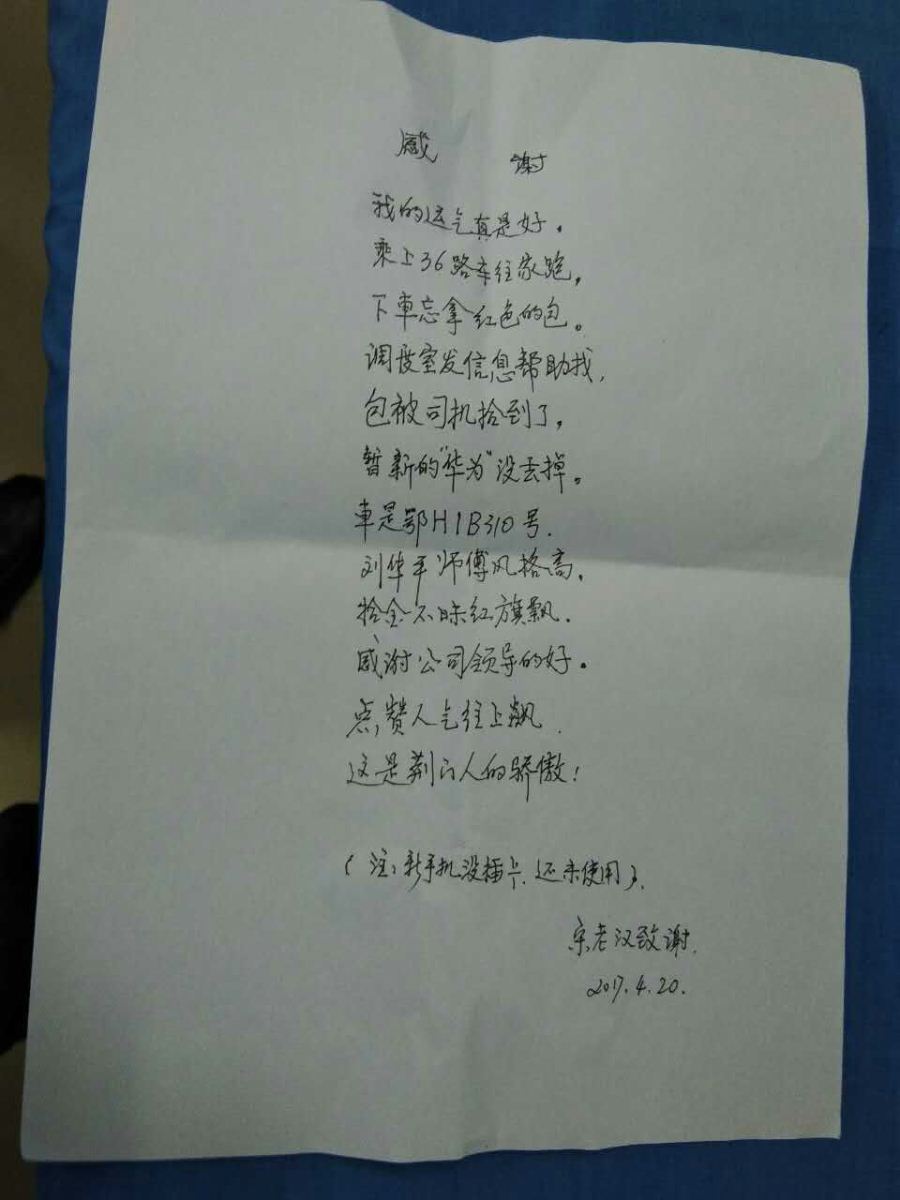 感 谢
我的运气真是好。
乘上36路车往家跑,
下車忘拿红色的包。
调度室发信息帮助找,
包被司机拾到了,
暂新的"华为"没丢掉。
車是鄂H1B310号.
刘华平师傅风格高,
拾金不昧红旗飘.
感谢公司领导的好。
点赞人气往上飙
这是荆门人的骄傲!
(注:新手机没插卡.还未使用).
宋老汉致谢.
2017.4.20.